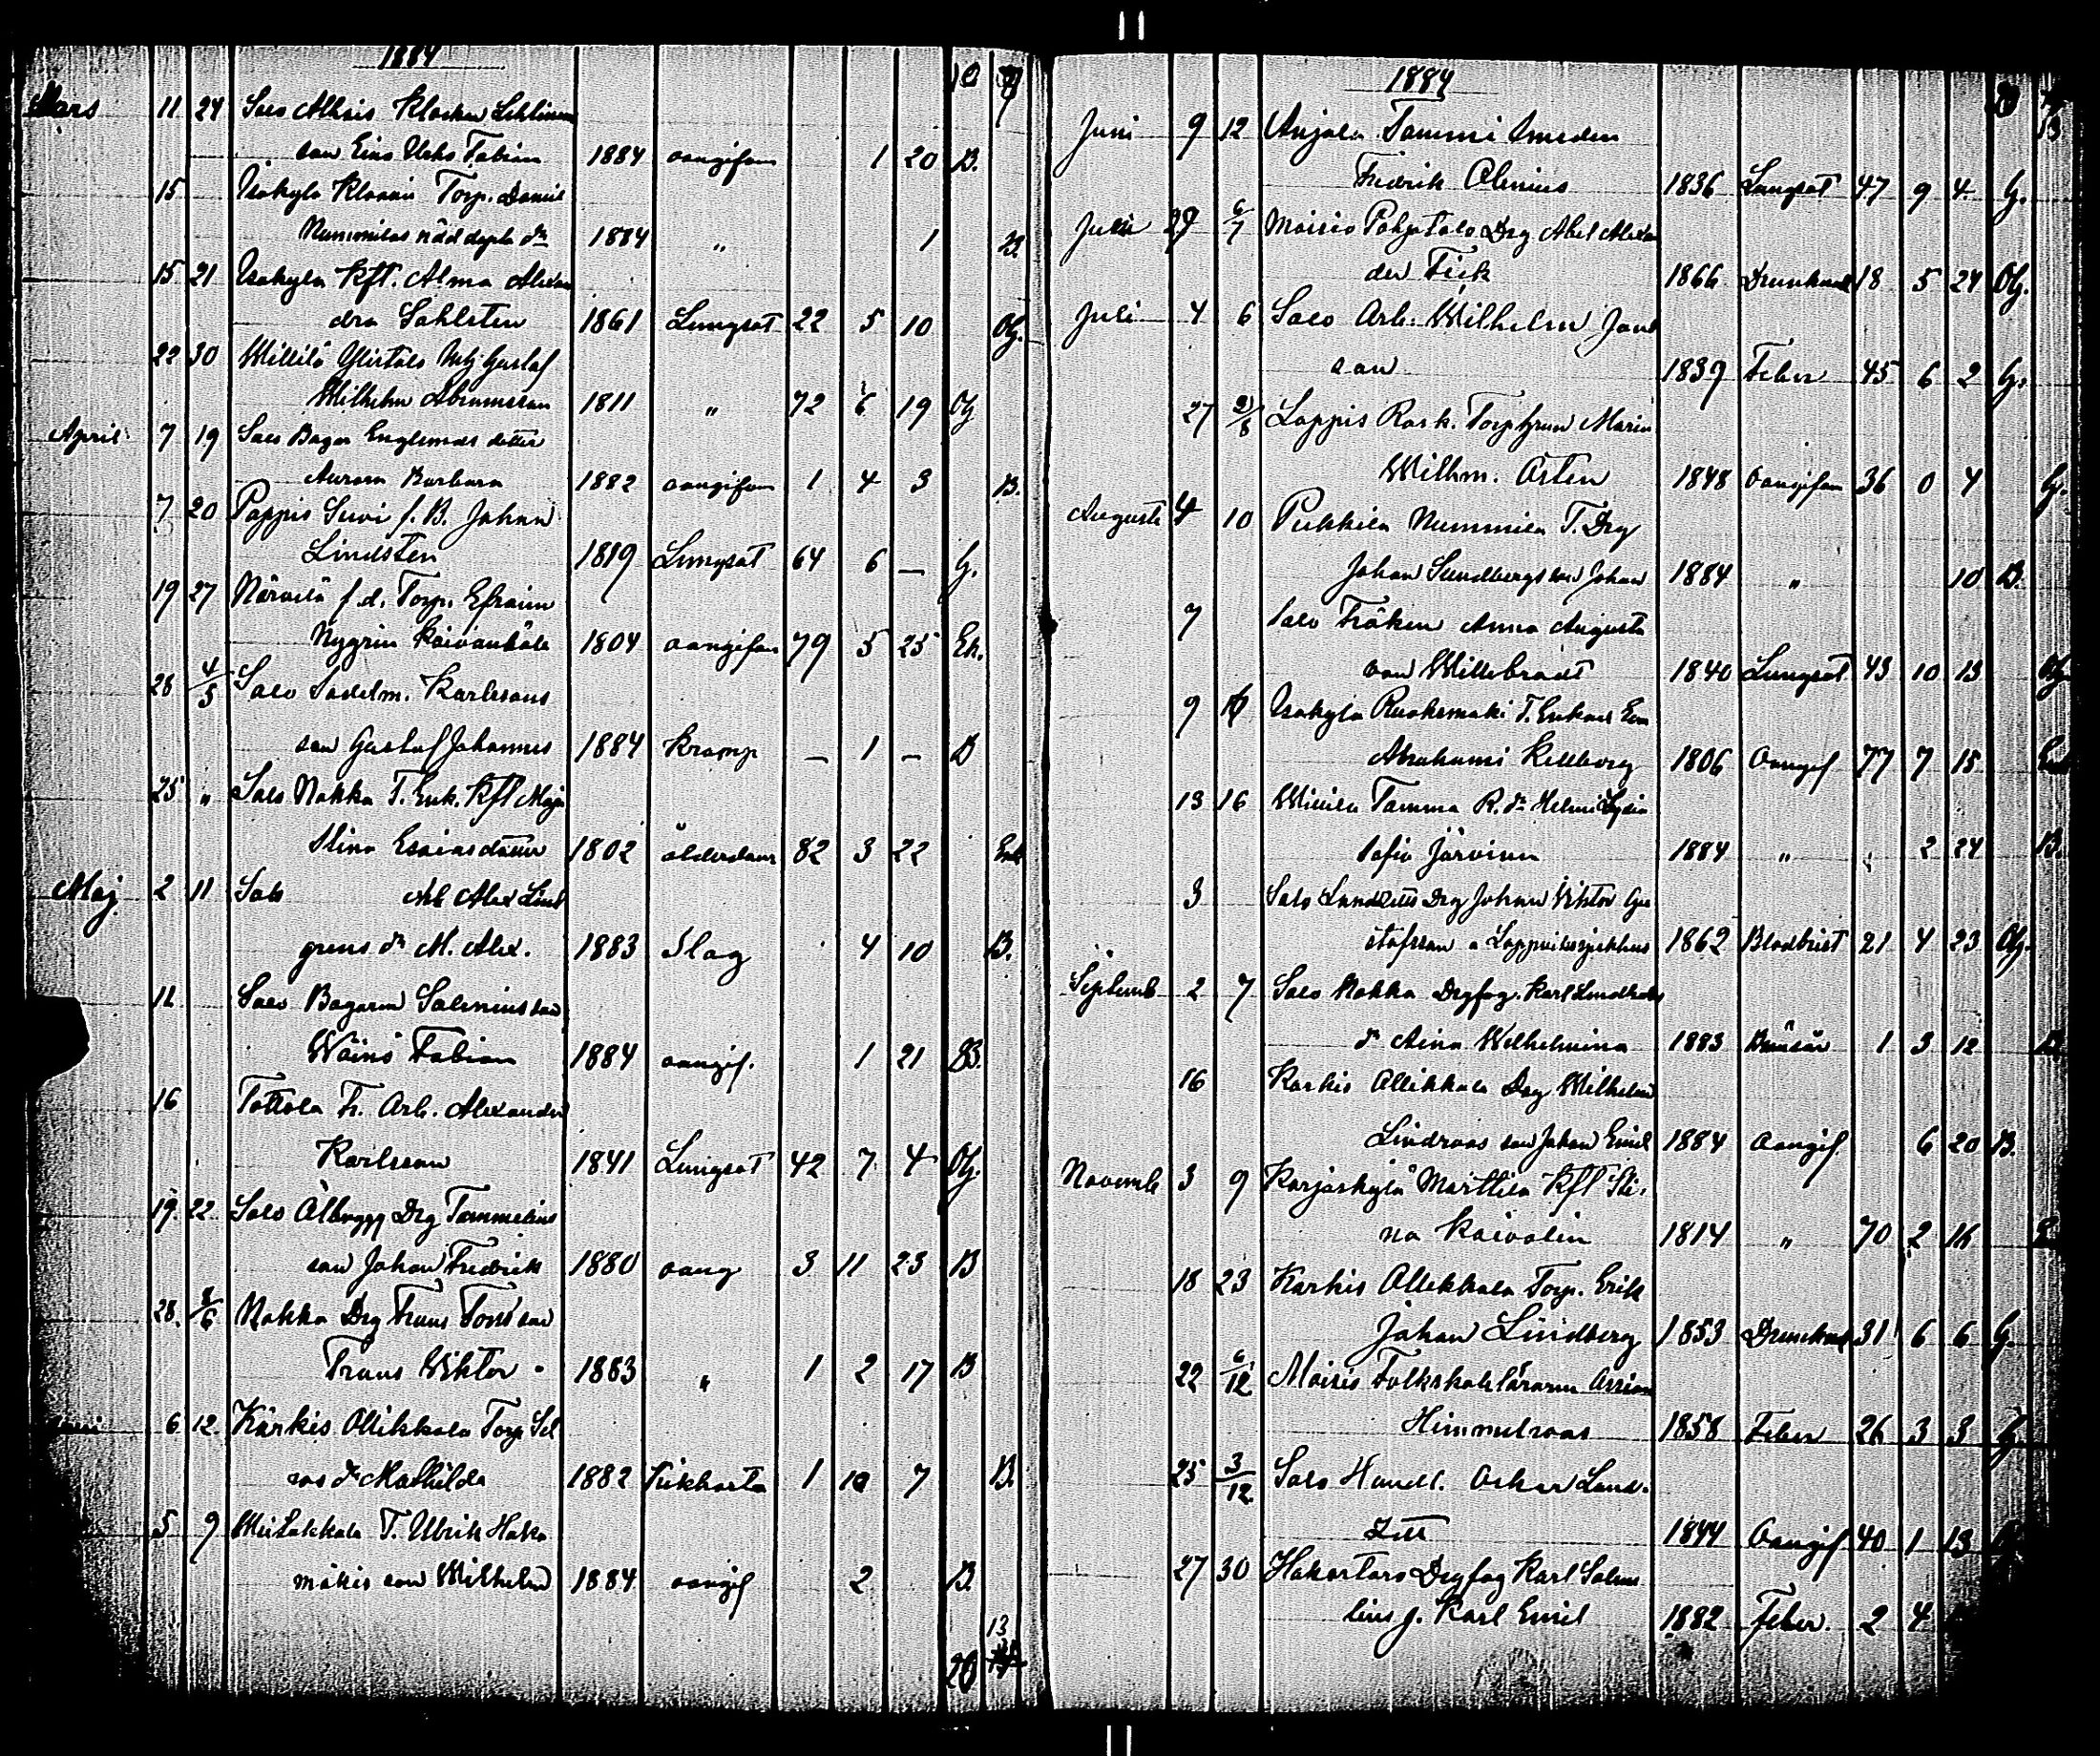 1884
Mars 11 24 Salo Alhais Klockar Sahlman
son Eino Urho Fabian 1884 oangifven 1 20 B.
15 Isokylä Klaavis Torp. Daniel
Nummilas nöddöpta dr 1884 " 1 B.
15 21 Isokylä Kft. Alma Alexan
dra Sahlsten 1861 Lungsot 22 5 10 Og.
22 30 Willilä Ylistalo Gustaf
Wilhelm Abramsson 1811 " 72 6 19 Og
April 7 19 Salo Bagar Englunds dotter
Aurora Barbara 1882 oangifven 1 4 3 B.
7 20 Pappis f. B. Johan
Lindsten 1819 Lungsot 64 6 — G.
19 27 Närvilä f.d. Torp. Efraim
Nygrén Kaivankälä 1804 oangifven 79 5 25 Ek.
28 4/5 Salo Sadelm. Karlssons
son Gustaf Johannes 1884 Kramp — 1 — B
25 " Salo Nokka T. Enk. Kft Maja
Stina Esaiasdotter 1802 ålderdom 82 3 22 Enk
Maj 2 11 Salo Arb Alex Lind
grens dr M. Alex. 1883 Slag 4 10 B.
12 Salo Bagaren Salenius son
Wäinö Fabian 1884 oangif. 1 21 B.
16 Tottola Fr. Arb. Alexander
Karlsson 1841 Lungsot 42 7 4 Og.
19. 22 Salo Ålbrygg Drg Tammelins
son Johan Fredrik 1880 oang 3 11 23 B
28. 8/6 Nokka Drg Frans son
Frans Wiktor 1883 " 1 2 17 B
6 12. Kärkis Ollikkala Torp Sel
ros dr Mathilda 1882 Kikhosta 1 10 7 B.
5 9 T. Ulrik Hako
mäkis son Wilhelm 1884 oangif 2 B.
13
20
1884
13
Juni 9 12 Anjala Tammi Smeden
Fredrik Alenius 1836 Lungsot 47 9 4 G.
Juni 29 6/7 Moisio Pohjatalo Drg Abel Alexan
der Fick 1866 Drunknad 18 5 24 Og.
Juli 4 6 Salo Arb. Wilhelm Jans
son 1839 Feber 45 6 2 G.
27 2/8 Lappis Rask. Torphrun Maria
Wilhm. Östen 1848 oangifven 36 0 4 G.
Augusti 4 10 Pukkila Nummila T. Drg
Johan Sundbergs son Johan 1884 " 10 B.
7 Salo Fröken Anna Augusta
von Willebrandt 1840 Lungsot 43 10 13 Og
9 16 Isokylä Ruohomäki T. Enkan Eva
Abrahami Kellberg 1806 Oangif 77 7 15 Enk
13 16 Tamma R. dr Helmi Lydia
Sofia Järvinen 1884 " 2 24 B.
3 Salo Landzetts Drg Johan Wiktor Gu
stafsson a Lappvikssjukhus 1862 Blodbrist 21 4 23 Og.
Septemb 2 7 Salo Nokka Drgfog. Karl Lindholms
dr Aina Wilhelmina 1883 1 3 12 B
16 Karkis Ollikkala Drg Wilhelm
Lindroos son Johan Emil 1884 Oangif. 6 20 B.
Novemb 3 9 Karjaskylä Marttila Kft Sti-
na Kaivolin 1814 " 70 2 16 E.
18 23 Karkis Ollikkala Torp. Erik
Johan Lindberg 1853 Drunknad 31 6 6 G.
22 6/12 Moisio Folkskoleläraren
Himmelroos 1858 Feber 26 3 3 G
25 3/12 Salo Handl. Oskar Land-
Zett 1844 Oangif 40 1 13
27 30 Hakostaro Drgfog Karl Salme
lins g. Karl Emil 1882 Feber. 2 4